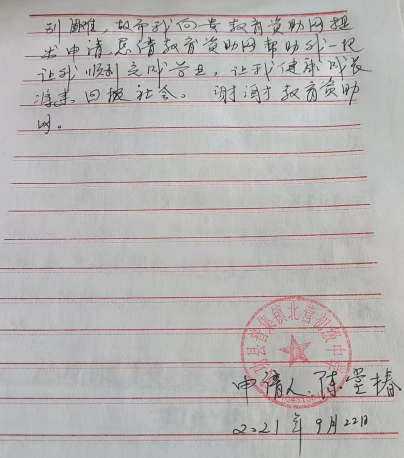 到困难，故而我向贵教育资助网提
出申请恳请教育资助网帮助我一把
让我顺利完成学业，让我健康成长
将来回报社会。谢谢教育资助
网。
县普集镇北营初级中学
申请人：陈墨椿
2021年9月22日